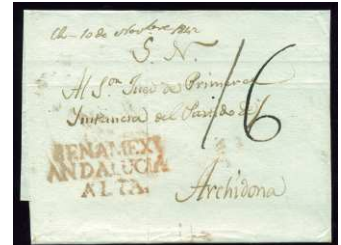 10 de Novbre 1842
S. N.
Al Sor Juez de Primera
Instancia del Partido de
16
BENAMEXI
ANDALUCIA
ALTA.
Archidona